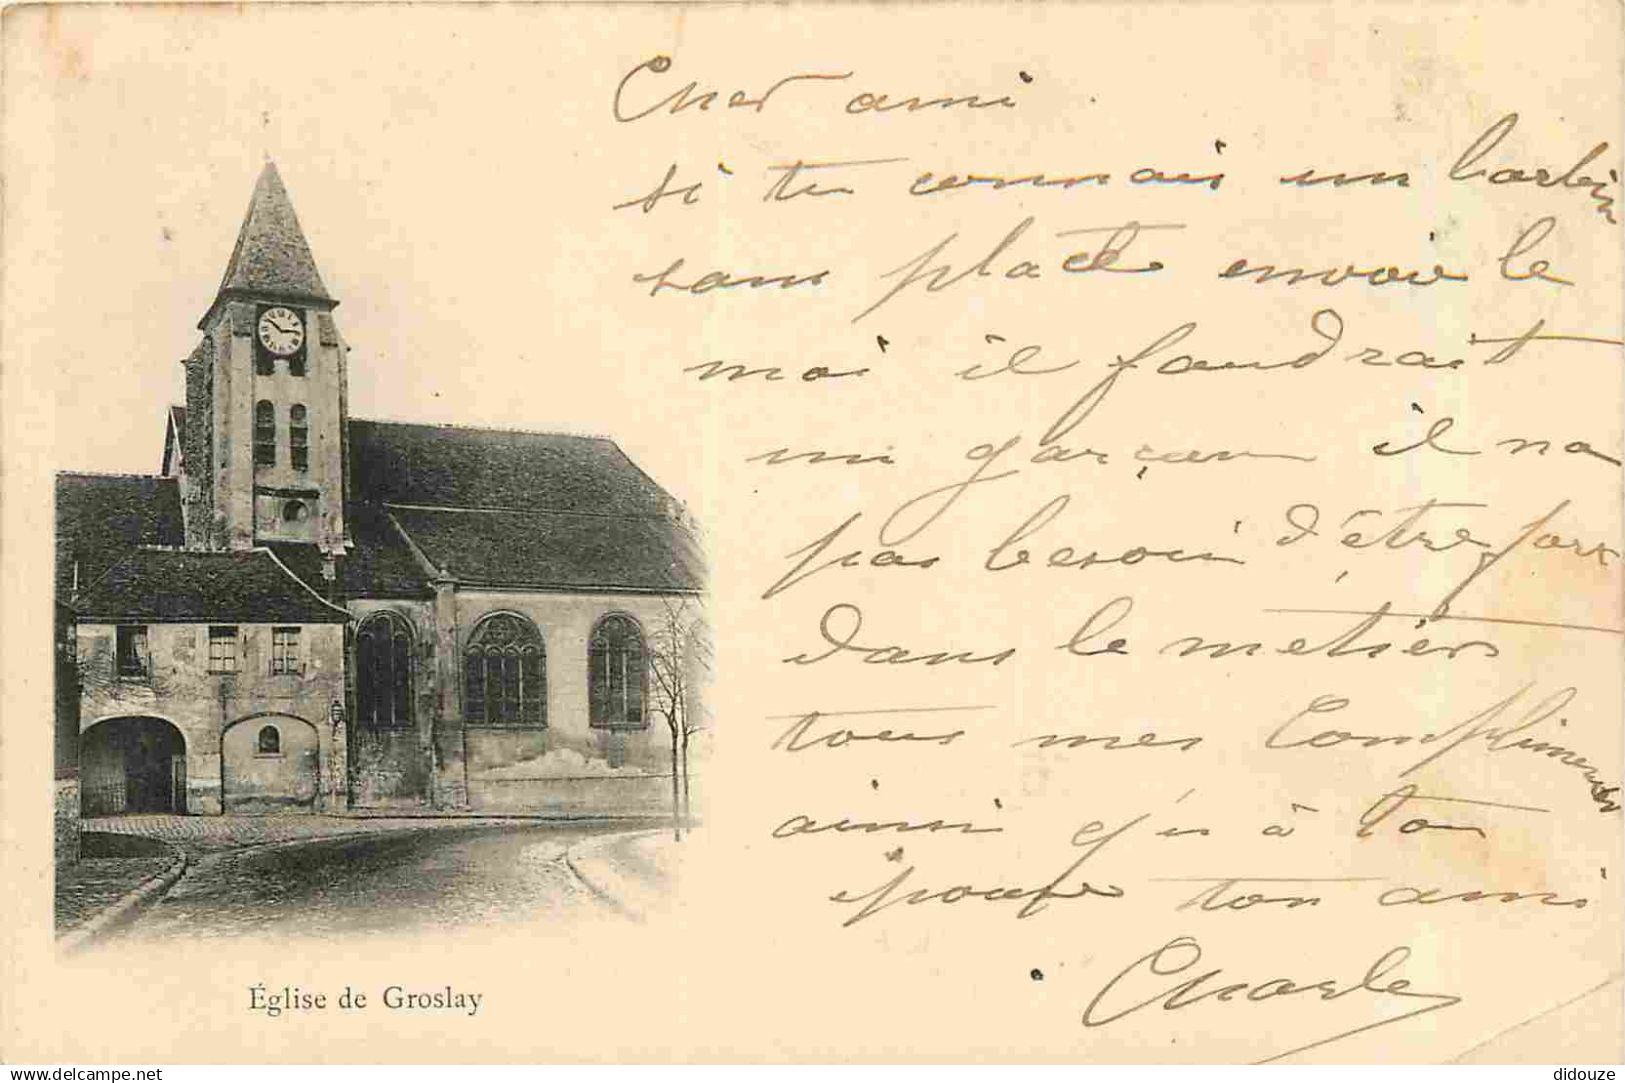 Cher ami
si tu connais un larbin
sans place envoie le
moi il faudrait
un garçon il na
pas besoin d'être fort
dans le metier
tous mes Compliments
ainsi qu'a ton
épouse ton ami
Charles
Église de Groslay
delcampe.net
didouze